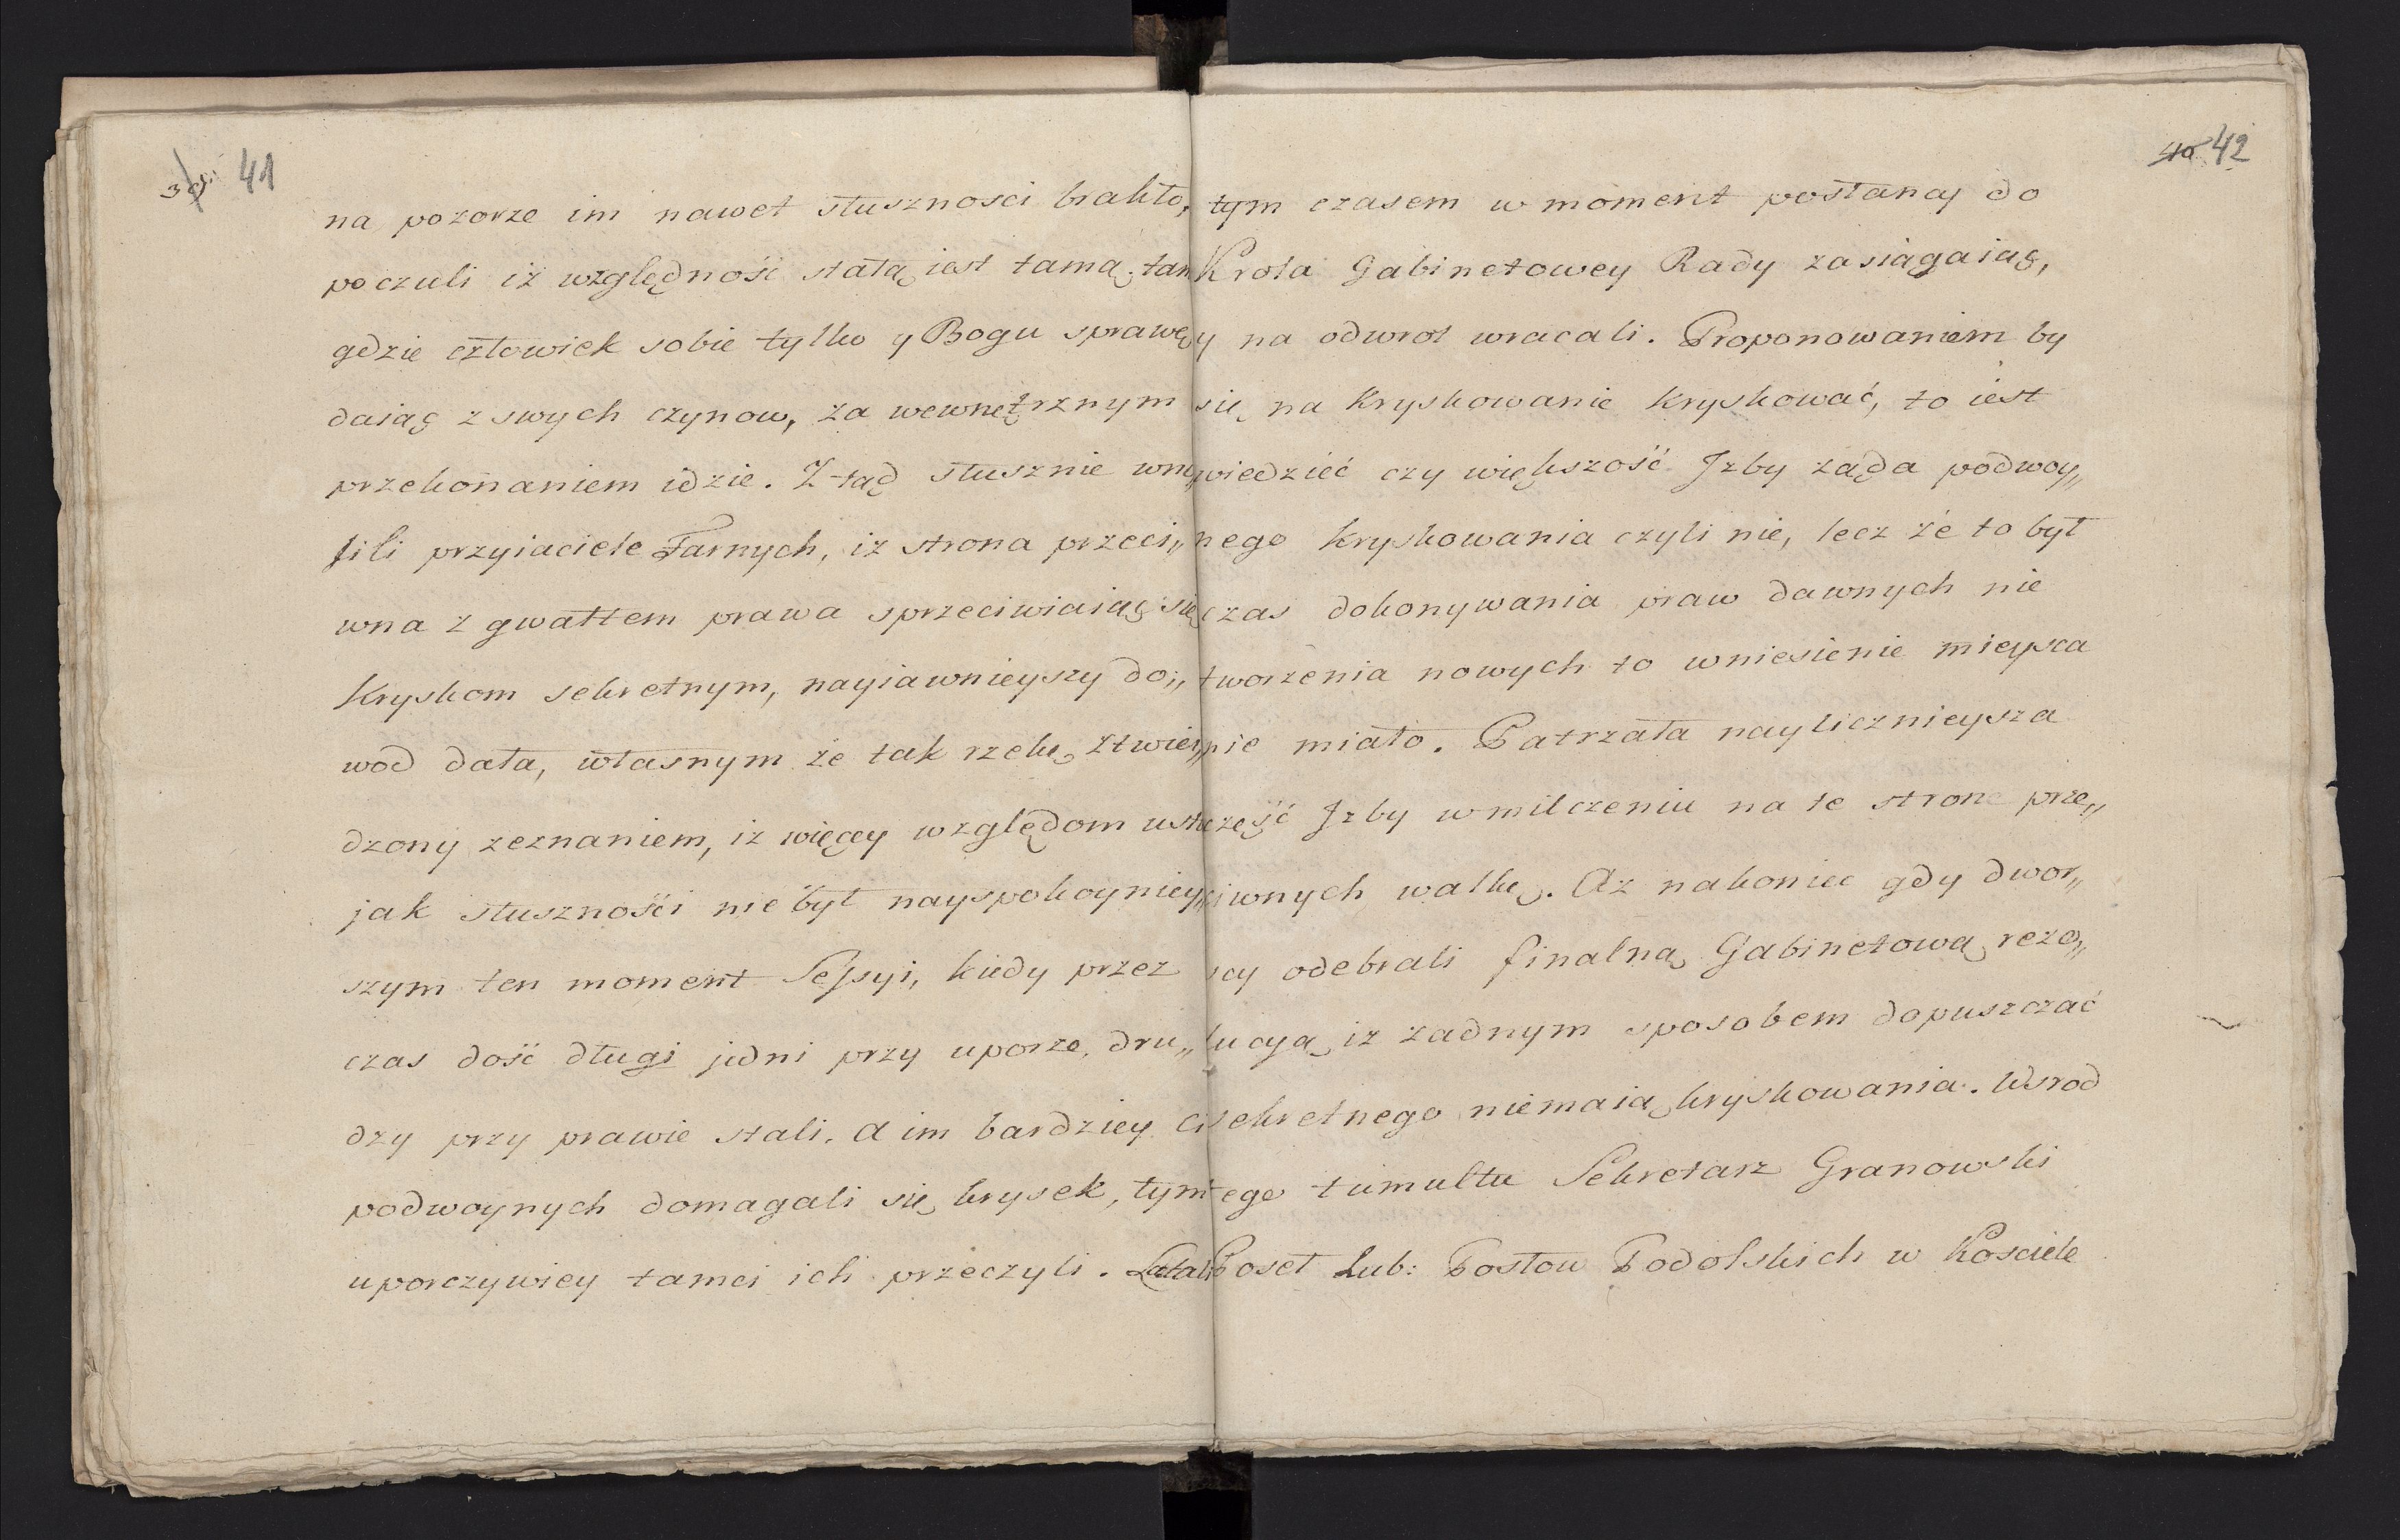 39 41
na pozorze im nawet słusznosci brakło,
poczuli iż względność stałą iest tamą tam
gdzie człowiek sobie tylko y Bogu sprawę
daiąc z swych czynow, za wewnętrznym
przekonaniem idzie. Ztąd słusznie wno„
sili przyiaciele Jarnych, iz strona przeci„
wna z gwałtem prawa sprzeciwiaiąc się
Kryskom sekretnym, nayiawnieyszy do„
wod dała, własnym że tak rzekę ztwier„
dzony zeznaniem, iz więcey względom
jak słuszności nie był nayspokoyniey„
szym ten moment Sessyi, kiedy przez
czas dość długi jedni przy uporze, dru„
dzy przy prawie stali, a im bardziey Ci
podwoynych domagali się krysek, tym
uporczywiey tamci ich przeczyli. Latali
40 42
tym czasem w moment posłancy do
Krola Gabinetowey Rady zasiągaiąc,
y na odwrot wracali. Proponowaniem by
się na Kryskowanie kryskować, to iest
wiedzieć czy większość Jzby ząda podwoy„
nego kryskowania czyli nie, lecz że to był
czas dokonywania praw dawnych nie
tworzenia nowych to wniesienie mieysca
nie miało. Patrzała naylicznieysza
część Jzby w milczeniu na te strone prze„
ciwnych walkę. Az nakoniec gdy dwor„
scy odebrali finalną Gabinetową rezo„
lucyą iz zadnym sposobem dopuszczać
sekretnego niemaią kryskowania. Wsrod
tego tumultu Sekretarz Granowski
Poseł Lub: Posłow Podolskich w Kosciele